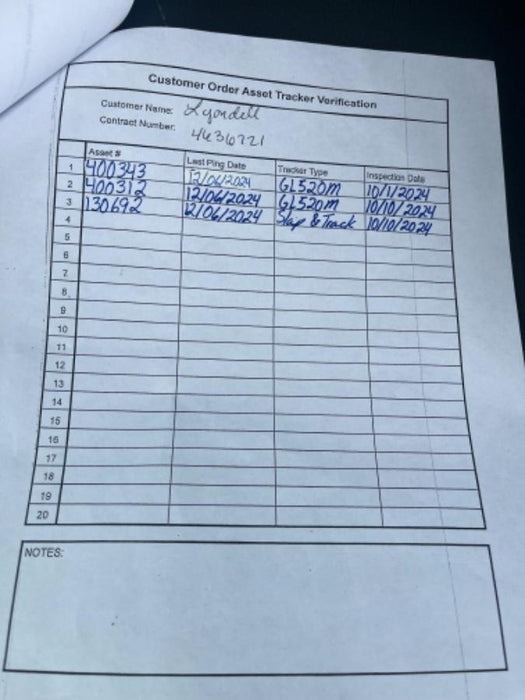 Customer Order Asset Tracker Verification
Customer Name: Lyondell
Contract Number: 4636721
Asset # Last Ping Date Tracker Type Inspection Date
1 400343 12/06/2024 GL520M 10/1/2024
2 400312 12/06/2024 GL520M 10/10/2024
3 130692 12/06/2024 Slap & Track 10/10/2024
4
5
6
7
8
9
10
11
12
13
14
15
16
17
18
19
20
NOTES: